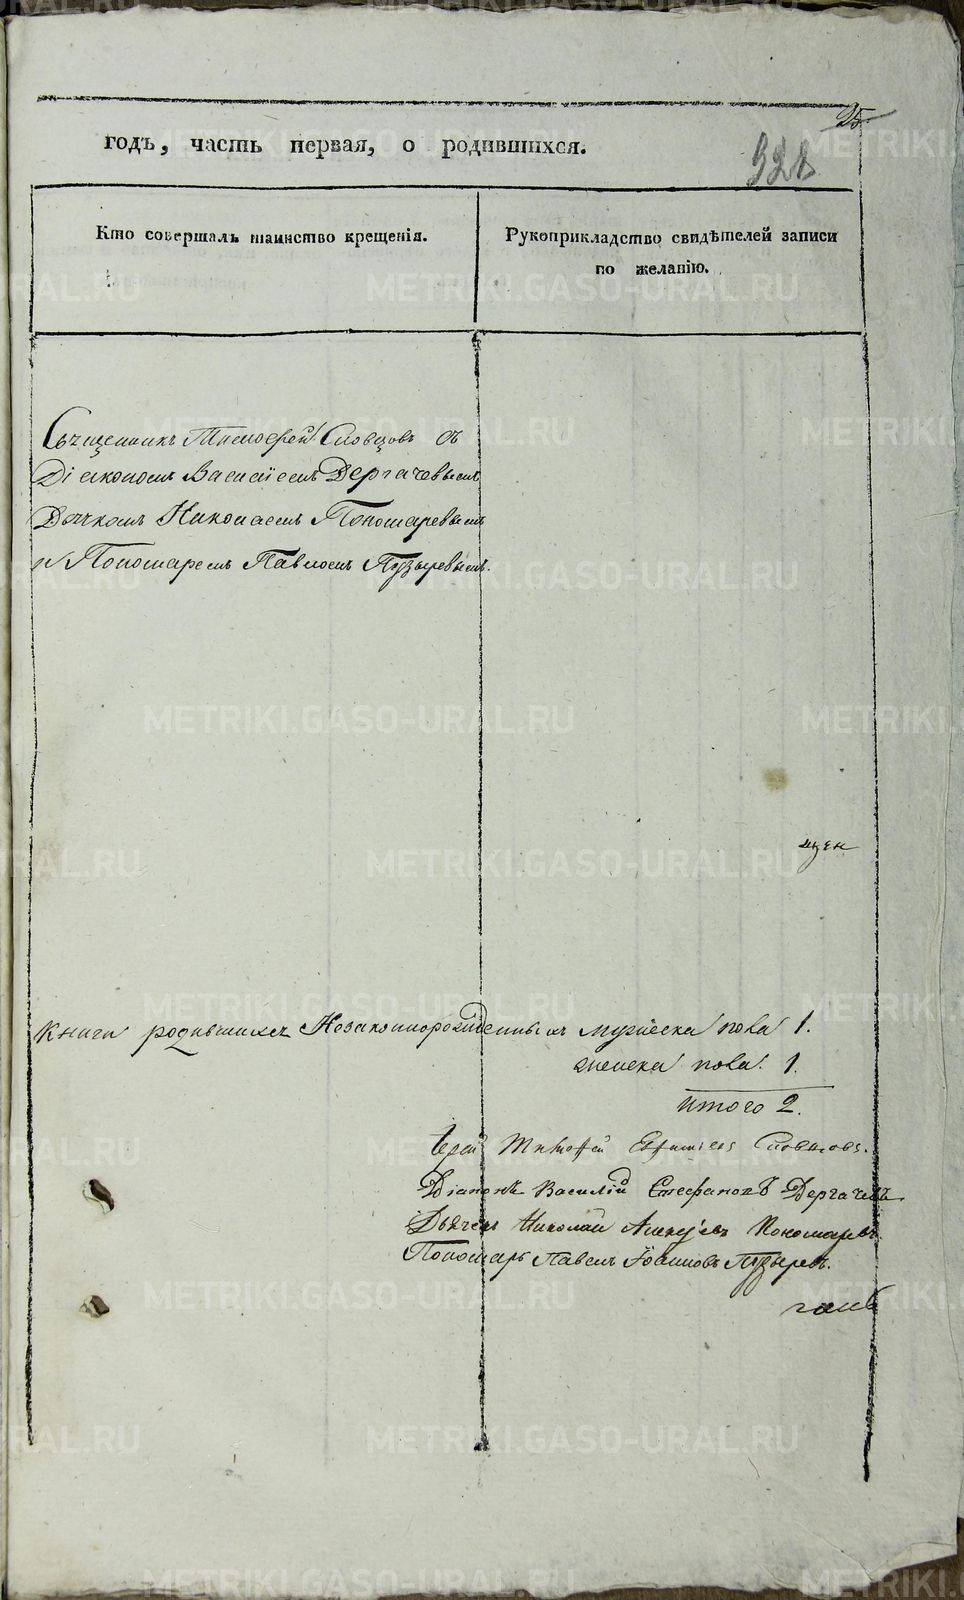 25
годъ, часть первая, о родившихся.
328
Кто совершалъ таинство крещенія.
Рукоприкладство свидѣтелей записи
по желанію.
Священникъ Тимофей Словцовъ съ
Діакономъ Василіемъ Дергачевымъ
Дьячкомъ Николаемъ Пономаревымъ
и Пономаремъ Павломъ Пузыревымъ.
книги родившихся Незаконнорожденныхъ мужеска пола 1.
женска пола. 1.
Итого 2.
Іерей Тимофей Словцовъ.
Діаконъ Василій Стефановъ Дергачевъ
Дьячекъ Николай Алексѣевъ Пономаревъ.
Пономарь Павелъ Іоанновъ Пузыревъ.
METRIKI.GASO-URAL.RU